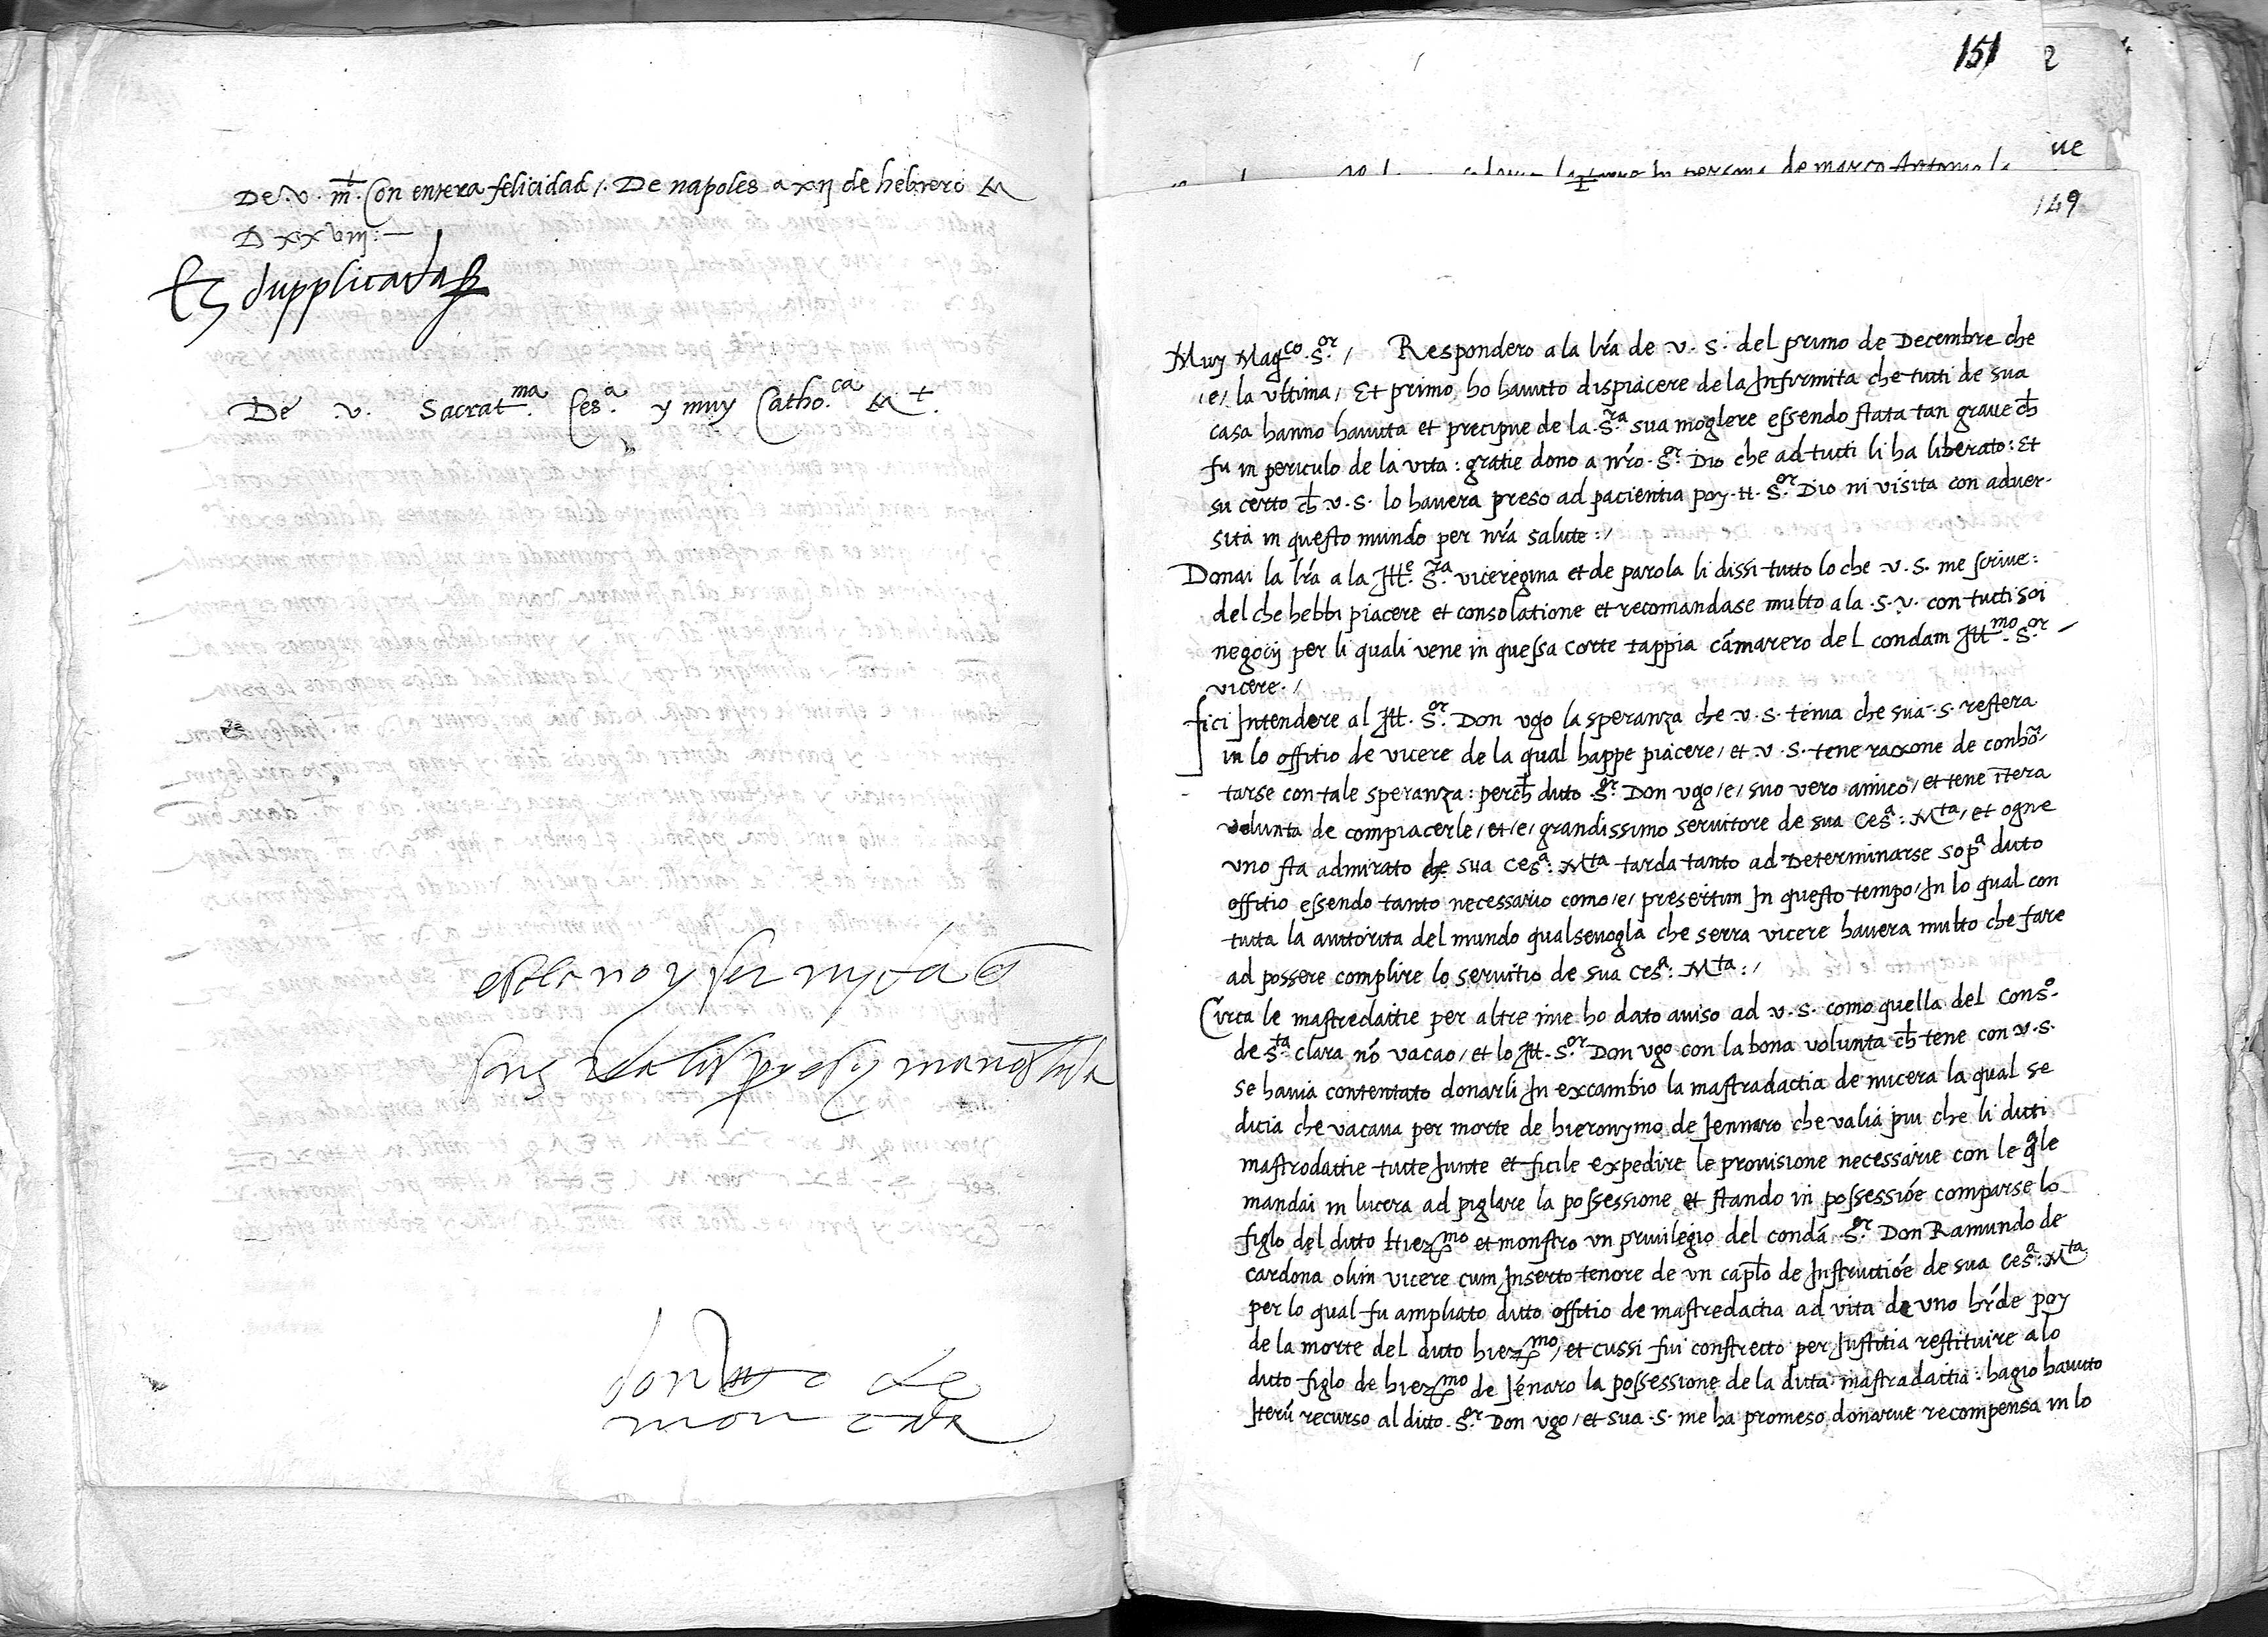 De .v. m.t Con entera felicidad /. De napoles a xij de hebrero M
D xxviij :—
Es dupplicada
De .v. Sacrat.ma Ces.a y muy Catho.ca M.t
don ugo de
moncada
151
2
ue
persona de marco Antonio
149
Muy Mag.co S.or / Respondero a la lr̃a de .v. S. del primo de Decembre che
/e/ la ultima / Et primo ho havuto dispiacere de la Infirmita che tutti de sua
casa hanno havuta et precipue de la S.ra sua moglere essendo stata tan grave ch̃
fu in periculo de la vita : gratie dono a nr̃o S.or Dio che ad tutti li ha liberato : Et
su certo ch̃ .v. S. lo havera preso ad pacientia poy .H. S.or Dio ni visita con adver-
sita in questo mundo per nr̃a salute : /
Donai la lr̃a a la Ill.e S.ra viceregina et de parola li dissi tutto lo che .v. S. me scrive :
del che hebbi piacere et consolatione et recomandase multo a la .S. v. con tutti soi
negocij per li quali vene in quessa corte tappia cãmarero del condam Ill.mo S.or
vicere. /
fici Intendere al Ill. S.or Don ugo la speranza che .v. S. tenia che sua .S. restera
in lo offitio de vicere de la qual happe piacere / et .v. S. tene raxone de conhor̃-
tarse con tale speranza : perch̃ ditto S.or Don ugo /e/ suo vero amico / et tene ĩtera
volunta de compiacerle / et /e/ grandissimo servitore de sua Ces.a M.ta / et ogne
uno sta admirato ch̃ sua Ces.a M.ta tarda tanto ad Determinarse sop.a ditto
offitio essendo tanto necessario como /e/ presertim In questo tempo / In lo qual con
tutta la auttorita del mundo qualsevogla che serra vicere havera multo che fare
ad possere complire lo servitio de sua Ces.a M.ta : /
Circa le mastredattie per altre mie ho dato aviso ad .v. S. como quella del Cons.o
de S.ta clara nõ vacao / et lo Ill. S.or Don ugo con la bona volunta ch̃ tene con .v. S.
se havia contentato donarli In excambio la mastradactia de nucera la qual se
dicia che vacava per morte de hieronymo de Jennaro che valia piu che li ditti
mastrodattie tutte Junte et ficile expedire le provisione necessarie con le q.ale
mandai in lucera ad piglare la possessione et stando in possessiõe comparse lo
figlo del ditto Hier.mo et monstro un privilegio del condã S.or Don Ramundo de
cardona olim vicere cum Inserto tenore de un cap̃lo de Instructiõe de sua Ces.a M.ta
per lo qual fu ampliato ditto offitio de mastredactia ad vita de uno hr̃de poy
de la morte del ditto hier.mo / et cussi fui constretto per Justitia restituire a lo
ditto figlo de hier.mo de Jẽnaro la possessione de la ditta mastradattia : hagio havuto
Iterũ recurso al ditto S.or Don ugo / et sua .S. me ha promeso donarve recompensa in lo